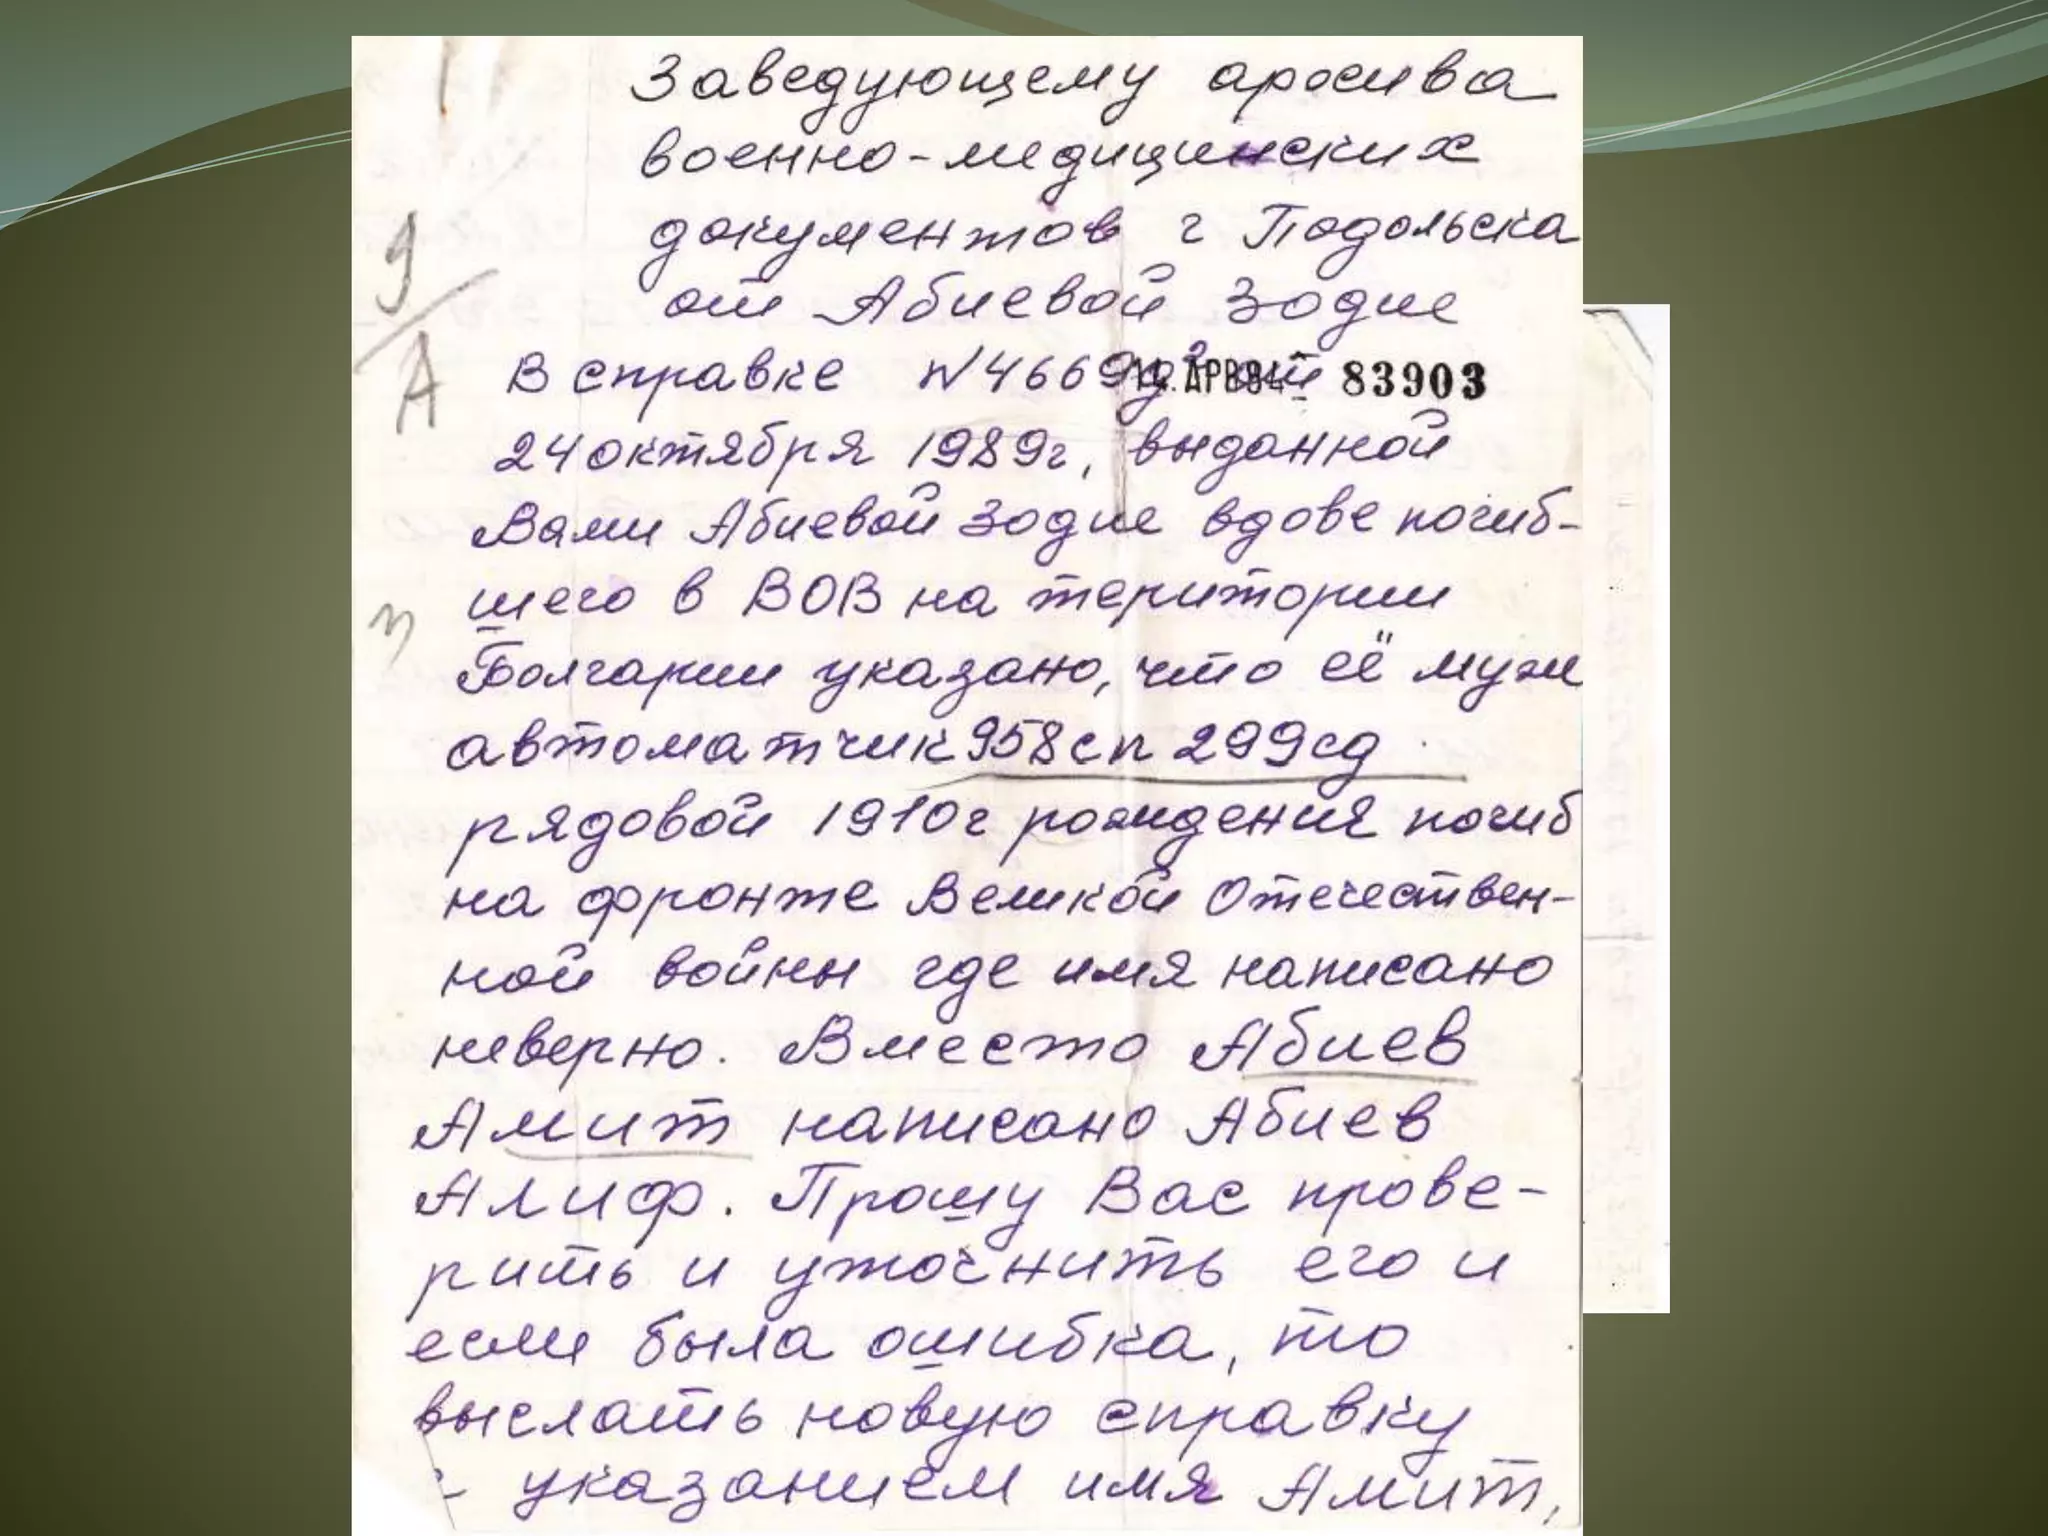 Заведующему архива
военно-медицинских
документов г Подольска
от Абиевой Зодие
9/А
В справке N 4669 от
83903
24 октября 1989г, выданной
Вами Абиевой Зодие вдове погиб-
шего в ВОВ на територии
Болгарии указано, что её муж
автоматчик 958сп 299сд
рядовой 1910г рождения погиб
на фронте Великой Отечествен-
ной войны где имя написано
неверно. Вместо Абиев
Амит написано Абиев
Алиф. Прошу Вас прове-
рить и уточнить его и
если была ошибка, то
выслать новую справку
с указанием имя Амит,